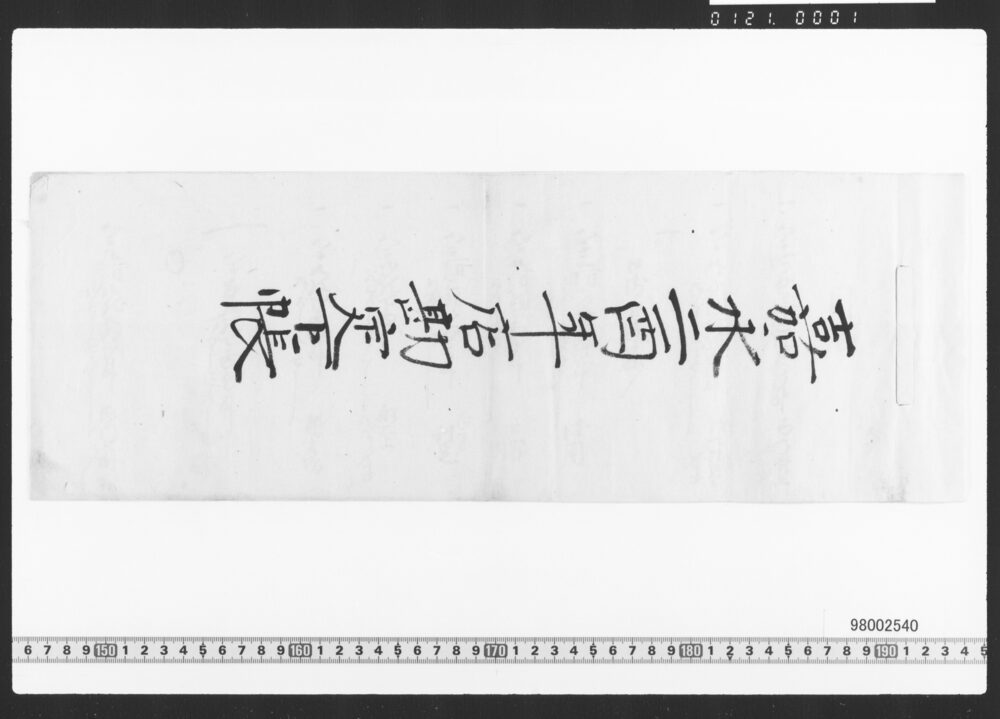 0121. 0001
嘉永二酉年店勘定帳
98002540
6 7 8 9 150 1 2 3 4 5 6 7 8 9 160 1 2 3 4 5 6 7 8 9 170 1 2 3 4 5 6 7 8 9 180 1 2 3 4 5 6 7 8 9 190 1 2 3 4 5